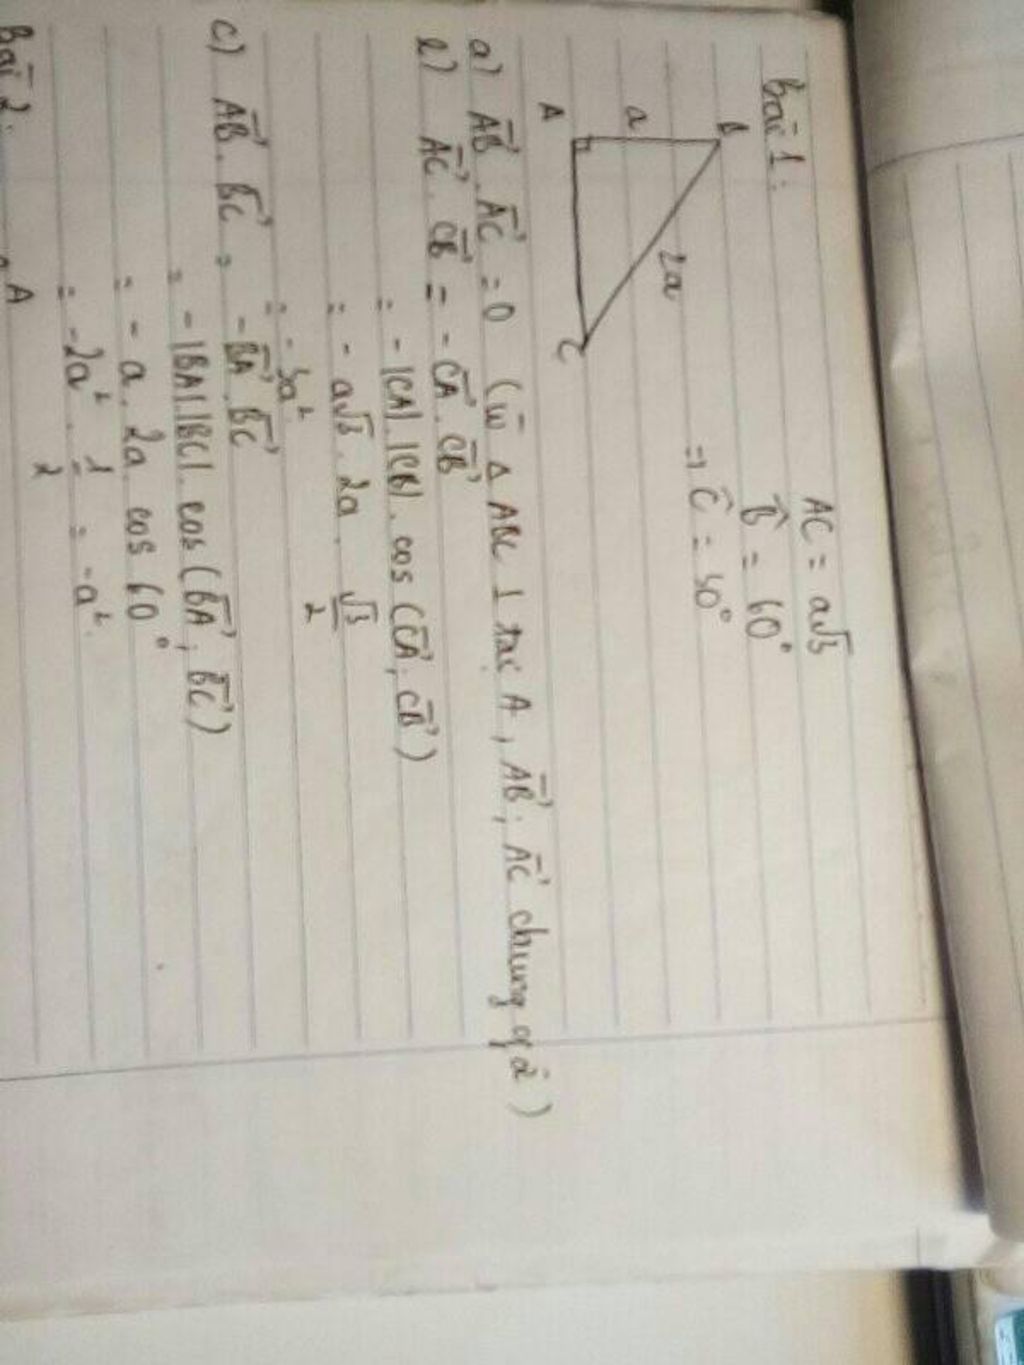 Bài 1:
B
a
2a
A
C
AC = a√3
B̂ = 60°
=> Ĉ = 30°
a) AB⃗ . AC⃗ = 0 (vì Δ ABC ⊥ tại A, AB⃗, AC⃗ chung gốc)
b) AC⃗ . CB⃗ = - CA⃗ . CB⃗
= - |CA| . |CB| . cos (CA⃗, CB⃗)
= - a√3 . 2a . √3/2
= - 3a²
c) AB⃗ . BC⃗ = - BA⃗ . BC⃗
= - |BA| . |BC| . cos (BA⃗, BC⃗)
= - a . 2a . cos 60°
= -2a² . 1/2 = -a².
Bài 2:
A